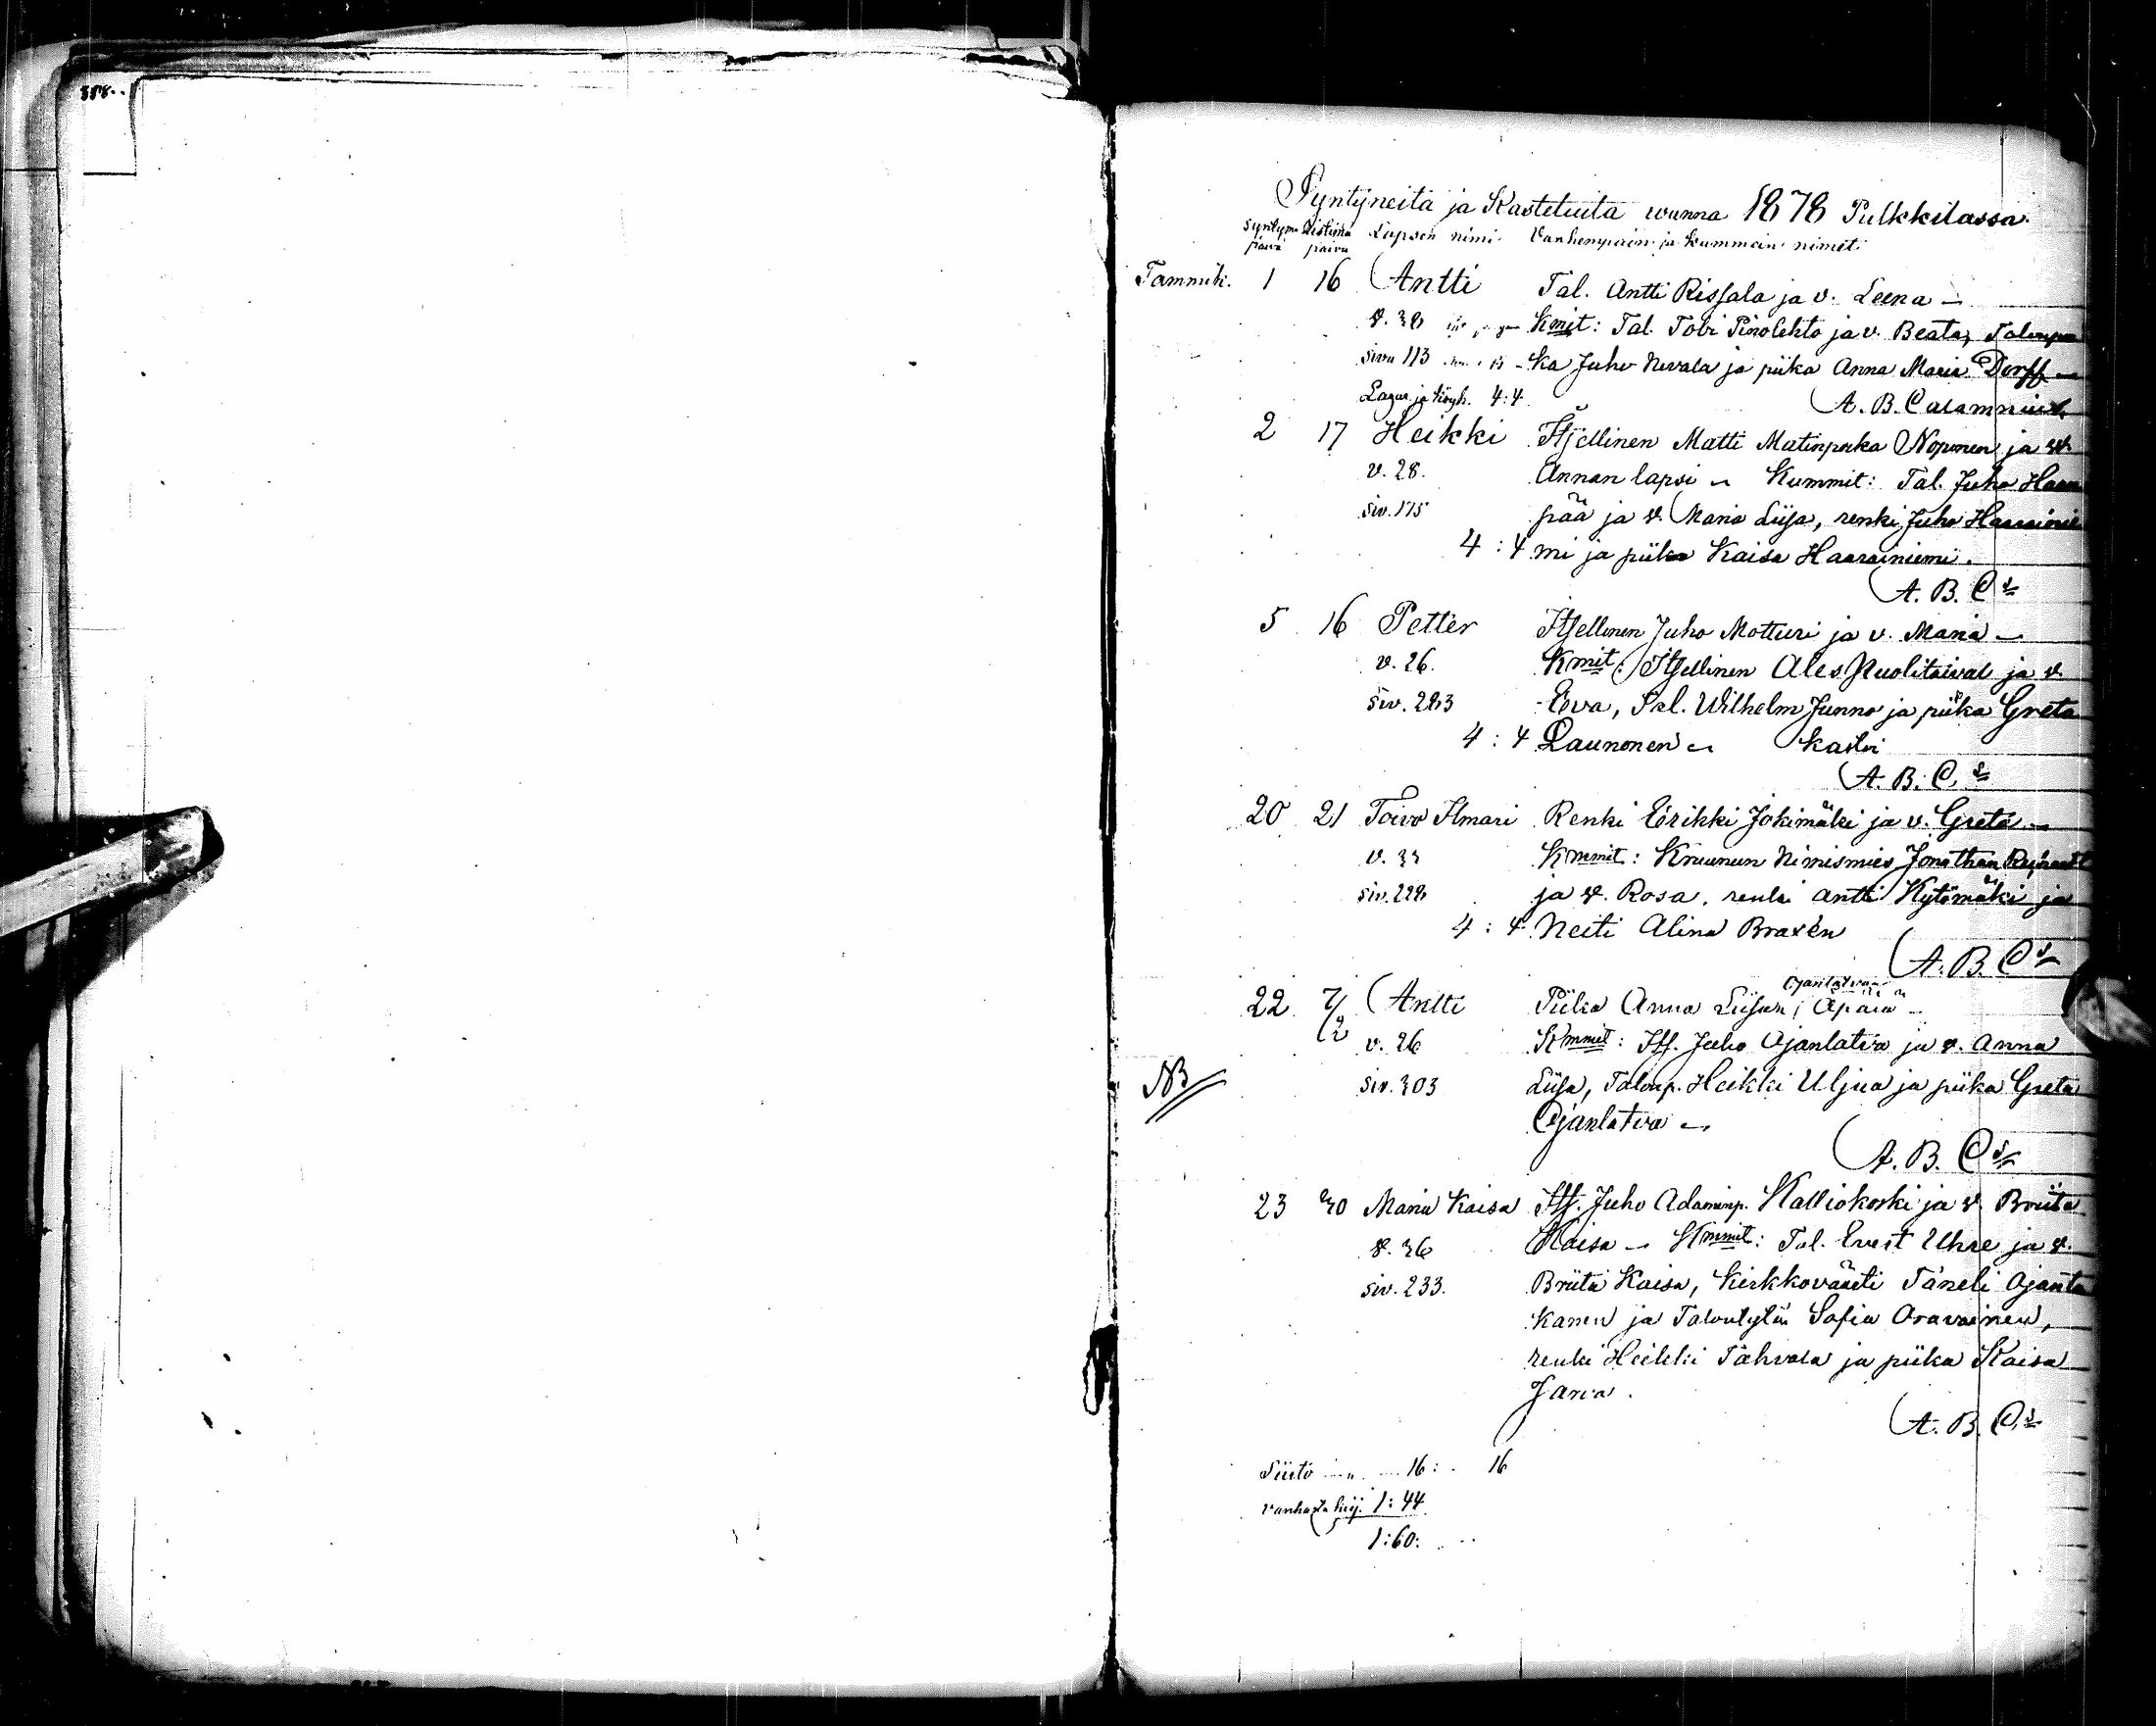 Syntyneitä ja Kastetuita wunna 1878 Pulkkilassa.
Syntym. päivä Ristimä päivä Lapsen nimi Vanhempain ja kummein nimet
Tammik. 1 16 Antti Tal. Antti Rissala ja v. Leena —
v. 38 Kmit: Tal. Tobi Pinolehto ja v. Beata, Talonpoi
sivu 113 ka Juho Nevala ja piika Anna Maria Dorff —
4:4 A. B. Calamnius.
2 17 Heikki Itsellinen Matti Matinpoika Noponen ja v.
v. 28. Annan lapsi — Kummit: Tal. Juho Haara
siv. 175 pää ja v. Maria Liisa, renki Juho Haarainie
4:4 mi ja piika Kaisa Haarainiemi.
A. B. Cs
5 16 Petter Itsellinen Juho Motturi ja v. Maria —
v. 26. Kmit: Itsellinen Ales. Nuolitaival ja v.
siv. 283 Eeva, Tal. Wilhelm Junno ja piika Greta
4:4 Launonen — kastoi
A. B. C.s
20 21 Toivo Ilmari Renki Eerikki Jokimäki ja v. Greta —
v. 33 Kmmit: Kruunun Nimismies Jonathan
siv. 228 ja v. Rosa, renki Antti Kytömäki ja
4:4 Neiti Alina Braxén
A. B. Cs
Ojanlatvan
22 7/2 Antti Piika Anna Liisan, Äpärä —
v. 26 Kmmit: Its. Juho Ojanlatva ja v. Anna
NB siv. 303 Liisa, Talonp. Heikki Uljua ja piika Greta
Ojanlatva —
A. B. Cs
23 30 Maria Kaisa Its. Juho Adaminp. Kalliokoski ja v. Briita
v. 36 Kaisa — Kmmit: Tal. Evert Uhre ja v.
siv. 233. Briita Kaisa, Kirkkoväärti Taneli Ojanta
kanen ja Talontytär Sofia Oravainen,
renki Heikki Tahvola ja piika Kaisa
Jarva.
A. B. C.s
Siirto 16: 16
vanhasta kirj. 1:44
1:60: